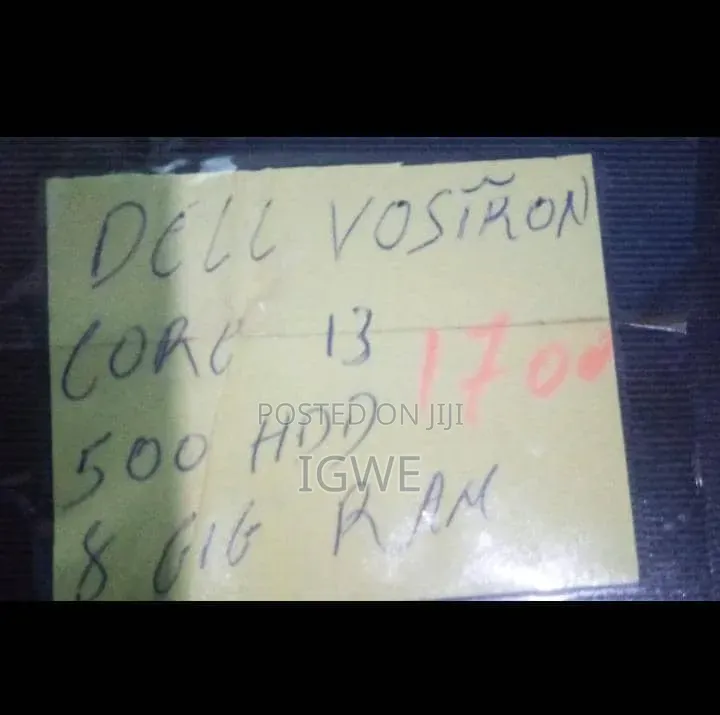 DELL VOSIRON
CORE i3
1700
500 HDD
8 GIG RAM
POSTED ON JIJI
IGWE